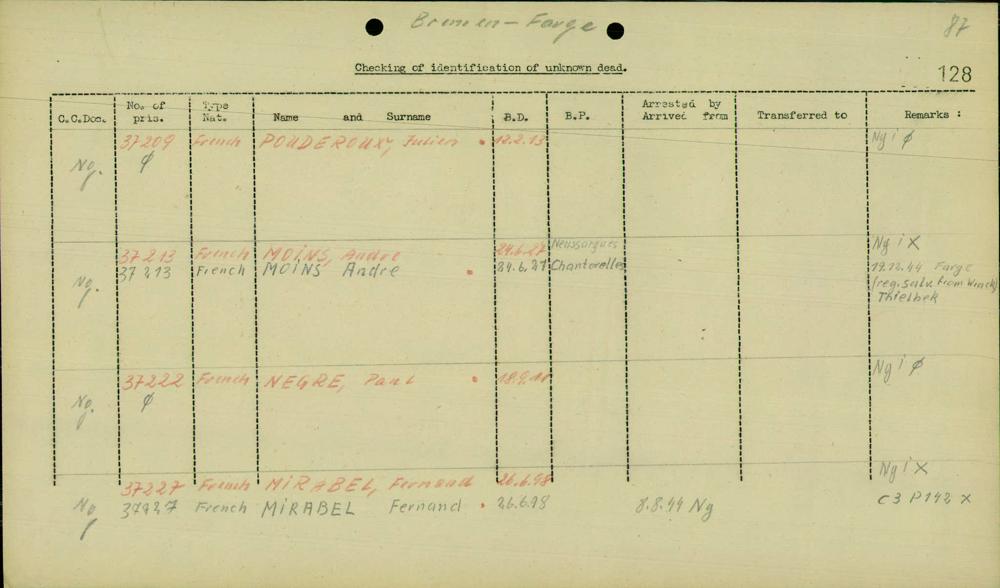 Bremen-Farge
87
Checking of identification of unknown dead.
128
C.C.Doc. No. of pris. Type Nat. Name and Surname B.D. B.P. Arrested by Arrived from Transferred to Remarks :
37209 French POUDEROUX, Julien 12.2.13 Ng i ø
Ng. ø
37213 French MOINS, Andre 24.6.27 Neussargues Ng i X
Ng. 37213 French MOINS Andre 24.6.27 Chanterelles 19.12.44 Farge
(reg. salv. from Wrack)
Thielbek
37222 French NEGRE, Paul Ng i ø
Ng. ø
37227 French MIRABEL, Fernand 26.6.98 Ng i X
Ng 37227 French MIRABEL Fernand 26.6.98 8.8.44 Ng C3 P142 X